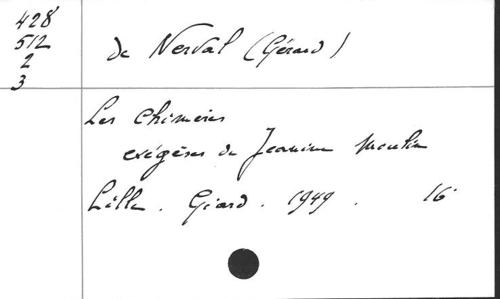 428
512
2
3
de Nerval (Gérard)
Les chimères
exégèses de Jeanine Moulin
Lille. Giard. 1949. 16°